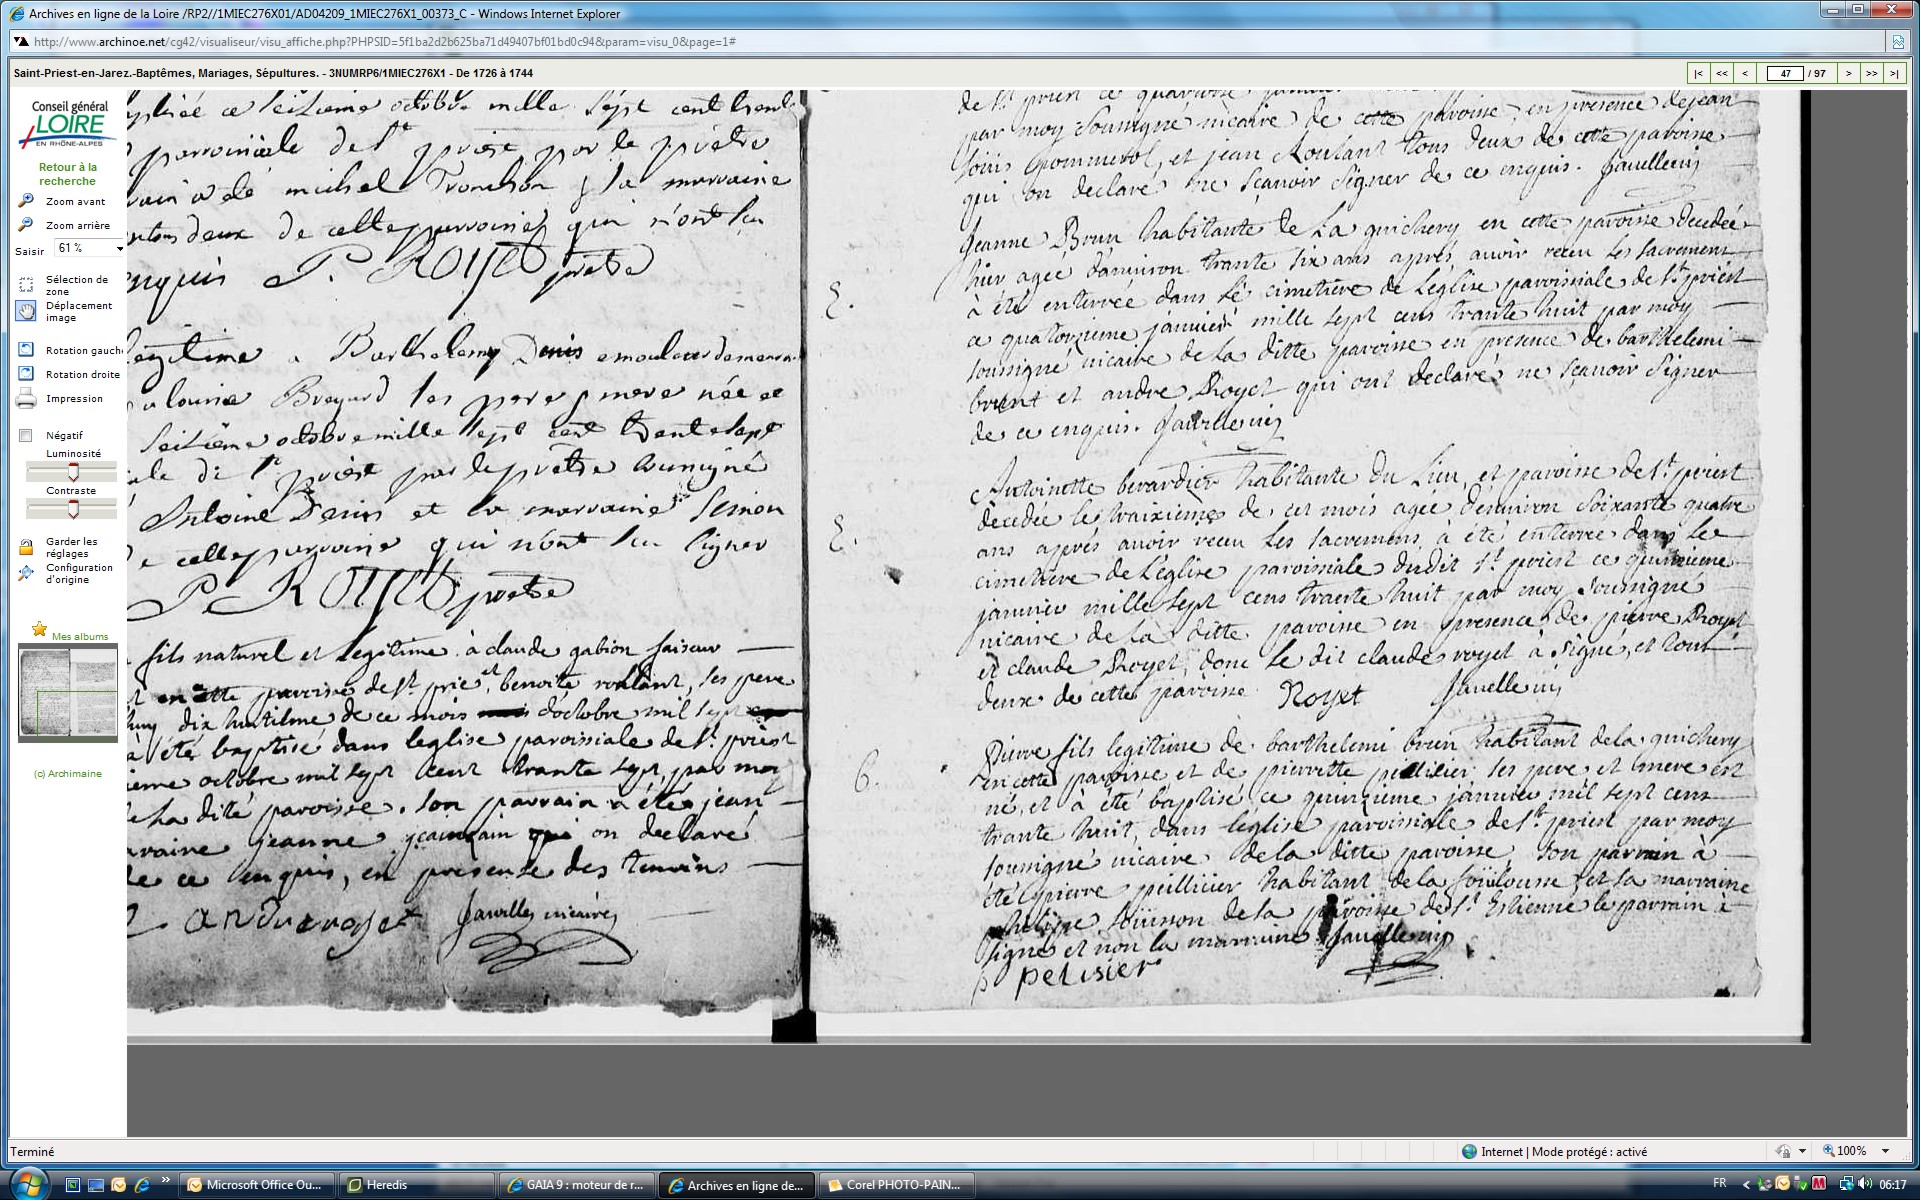 Archives en ligne de la Loire /RP2//1MIEC276X01/AD04209_1MIEC276X1_00373_C - Windows Internet Explorer
http://www.archinoe.net/cg42/visualiseur/visu_affiche.php?PHPSID=5f1ba2d2b625ba71d49407bf01bd0c94&param=visu_0&page=1#
Saint-Priest-en-Jarez.-Baptêmes, Mariages, Sépultures. - 3NUMRP6/1MIEC276X1 - De 1726 à 1744
|< << < 47 / 97 > >> >|
Conseil général
LOIRE
EN RHÔNE-ALPES
Retour à la
recherche
Zoom avant
Zoom arrière
Saisir 61 %
Sélection de
zone
Déplacement
image
Rotation gauch
Rotation droite
Impression
Négatif
Luminosité
Contraste
Garder les
réglages
Configuration
d'origine
Mes albums
(c) Archimaine
ce seitieme octobre mille sept cent trente
parroissiale de St priest par le prêtre
a été michel Tronchon & la marraine
deux de cette parroisse qui n'ont su
enquis P. ROYET prêtre
legitime a Barthelemy Denis emouleur
louise Breyard ses pere & mere née ce
seitiême octobre mille sept cent trente sept
de St priest par le prêtre soussigné
Antoine Denis et la marraine Simon
de cette parroisse qui n'ont su signer
P. ROYET prêtre
fils naturel et legitime à claude gabion faiseur
en cette paroisse de St priest, benoite roulant, ses pere
dix huitiême de ce mois d'octobre mil sept
a été baptisé dans leglise paroissiale de St priest
octobre mil sept cent trante sept, par moy
la dite paroisse. son parrain a été jean
jeanne qui on declaré
de ce enquis, en presense des temoins
andre royet Javelles vicaire
de St priest ce quatorzième janvier
par moy Soussigné vicaire de cette paroisse, en presence de jean
louis Pommerol, et jean Roulant tous deux de cette paroisse
qui on declaré ne sçavoir signer de ce enquis. Javelle vic
E.
Jeanne Brun habitante de La quichery en cette paroisse decedée
hier agée d'environ trante six ans aprés avoir receu les sacrement
à été enterrée dans le cimetière de L'église paroissiale de St priest
ce quatorzieme janvier mille sept cens trante huit par moy
soussigné vicaire de la ditte paroisse en presence de barthelemi
brunt et andre Royet qui ont declaré ne sçavoir signer
de ce enquis. Javelle vic
E.
Antoinette berardier habitante du Lieu, et paroisse de St priest
decedée le traixieme de cet mois agée d'environ soixante quatre
ans aprés avoir receu les sacremens à été enterree dans le
cimetière de L'église paroissiale dudit St priest ce quinzieme
janvier mille sept cens trante huit par moy soussigné
vicaire de la ditte paroisse en presence de pierre Royet
et claude Royet, donc le dit claude royet à signé, et tout
deux de cette paroisse Royet Javelle vic
Pierre fils legitime de barthelemi brun habitant de la quichery
en cette paroisse et de pierrette pellissier ses pere et mere est
né, et à été baptisé ce quinzieme janvier mil sept cens
trante huit, dans l'église paroissiale de St priest par moy
soussigné vicaire de la ditte paroisse, son parrain à
été pierre peillissier habitant de la et sa marraine
de la paroisse de St Estienne le parrain à
signé et non la marraine Javelle vic
p pelisier
Terminé
Internet | Mode protégé : activé
100%
Microsoft Office Ou...
Heredis
GAIA 9 : moteur de r...
Archives en ligne de...
Corel PHOTO-PAIN...
FR
06:17